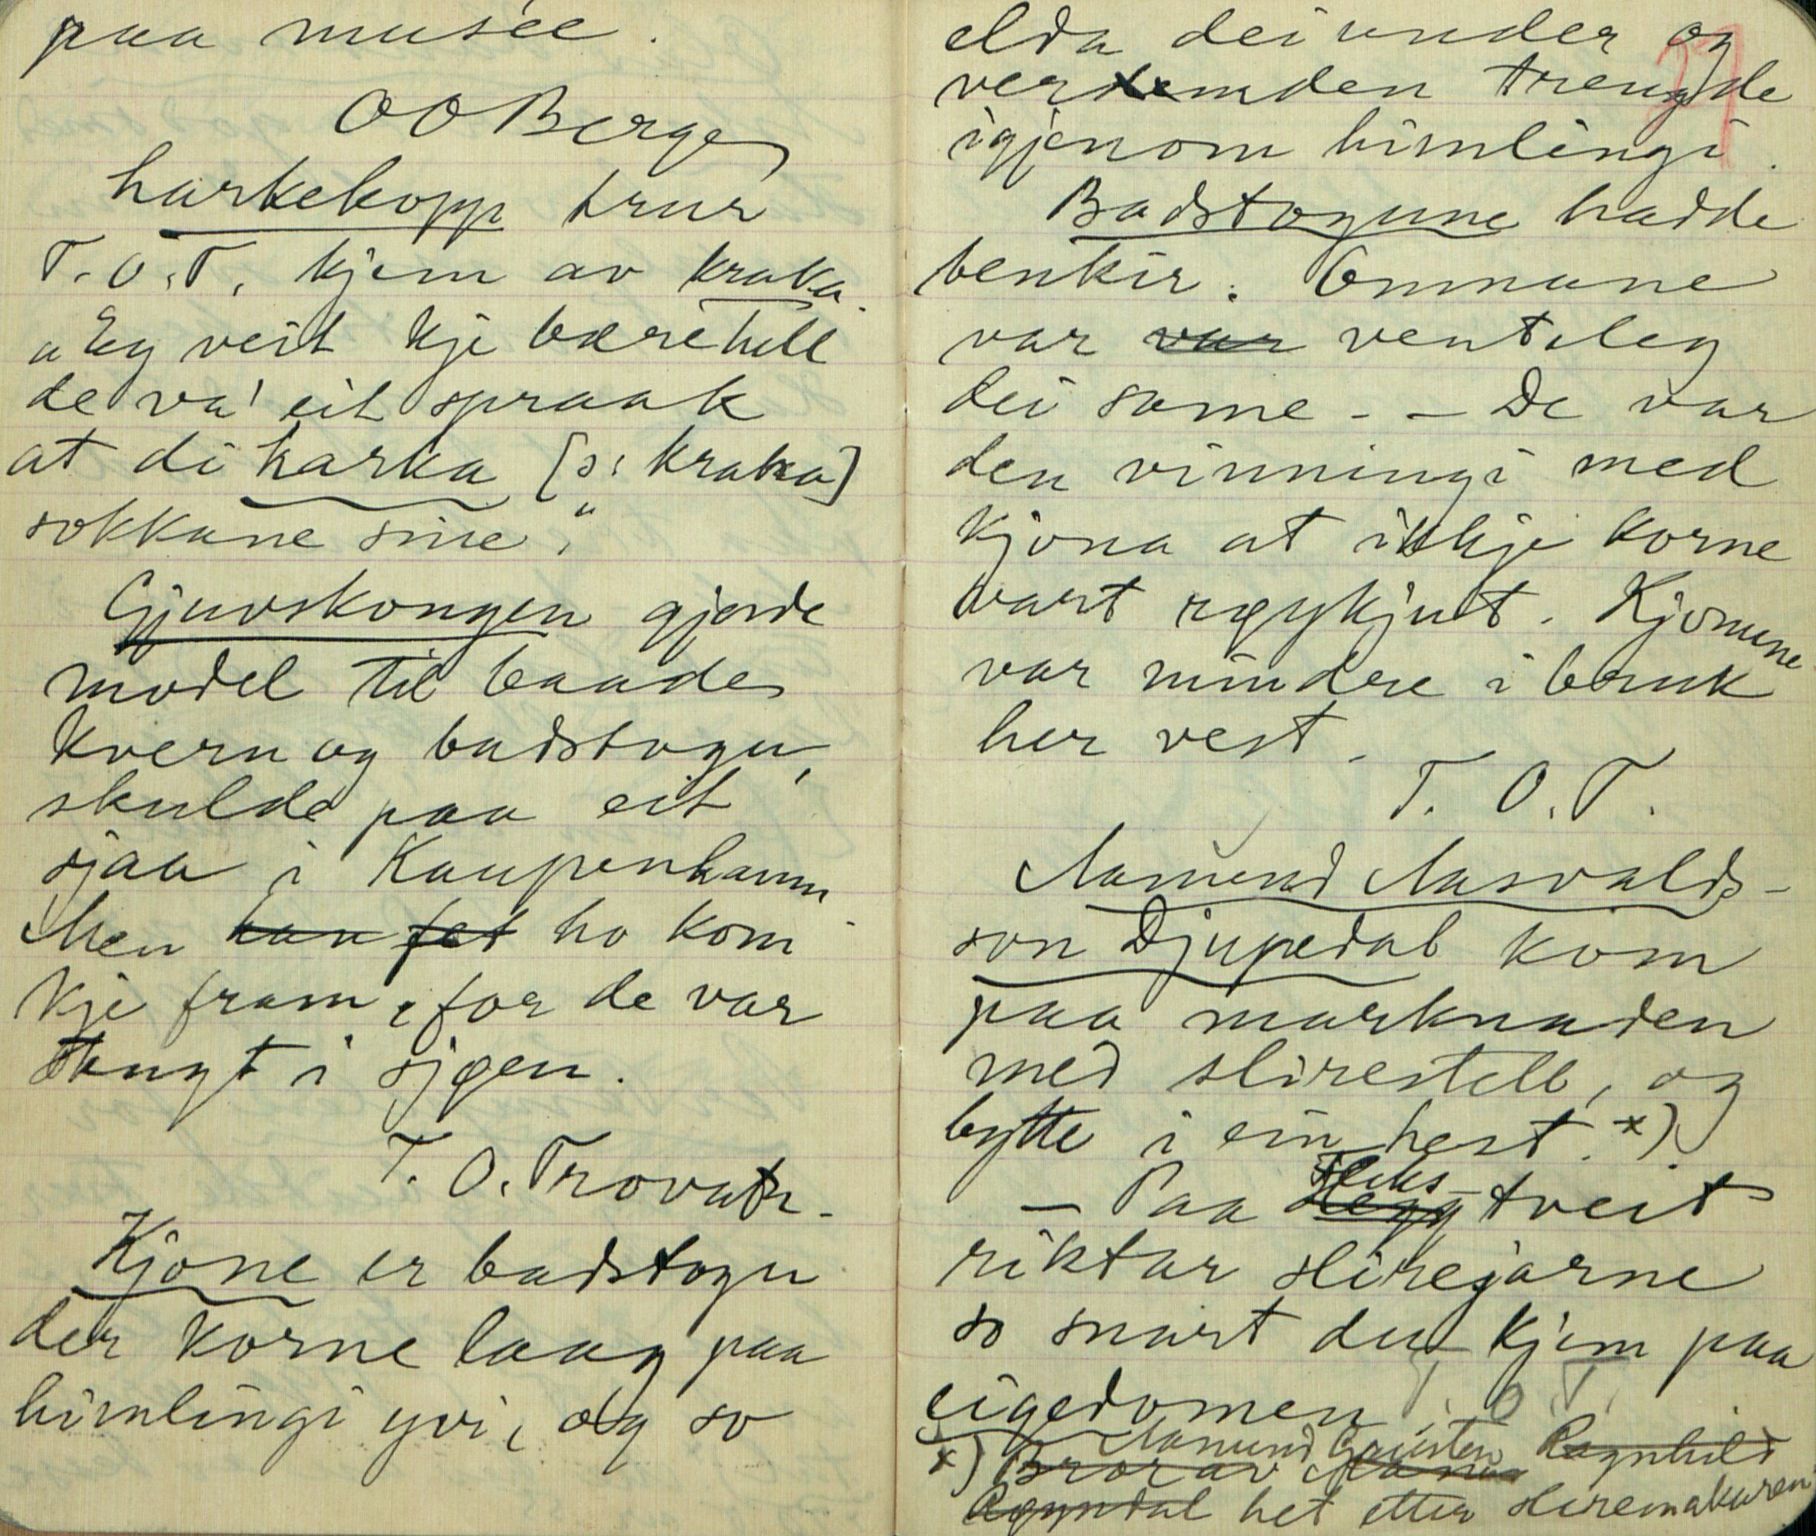 paa musée.
O O Berge
harkekopp trur
T.O.T. kjem av kraka.
"Eg veit kje bære hell
de va' eit spraak
at di harka [ɔ: kraka]
sokkane sine."
Gjuvskongen gjorde
model til baade
kvern og badstogu,
skulde paa eit
sjaa i Kaupenhamn.
Men han fet ho kom
kje fram, for de var
stengt i sjøen.
T. O. Trovatn.
Kjone er badstogu
der korne laag paa
himlingi yvi, og so
elda dei under og
vermden trengde
igjenom himlingi.
Badstogune hadde
benkir. Omnane
var var venteleg
dei same - - De var
den vinningi med
kjona at ikkje korne
vart røykjut. Kjonune
var mindre i bruk
her vest.
T. O. T.
Aamund Aasvalds-
son Djupedal kom
paa marknaden
med slirestell, og
bytte i ein hest. x)
- Paa Sleks-tveit
riktar slirejarne
so snart du kjem paa
eigedomen. T. O. T.
x) Aamund Grusten Ragnhild
Bror av
het etter sliremakaren